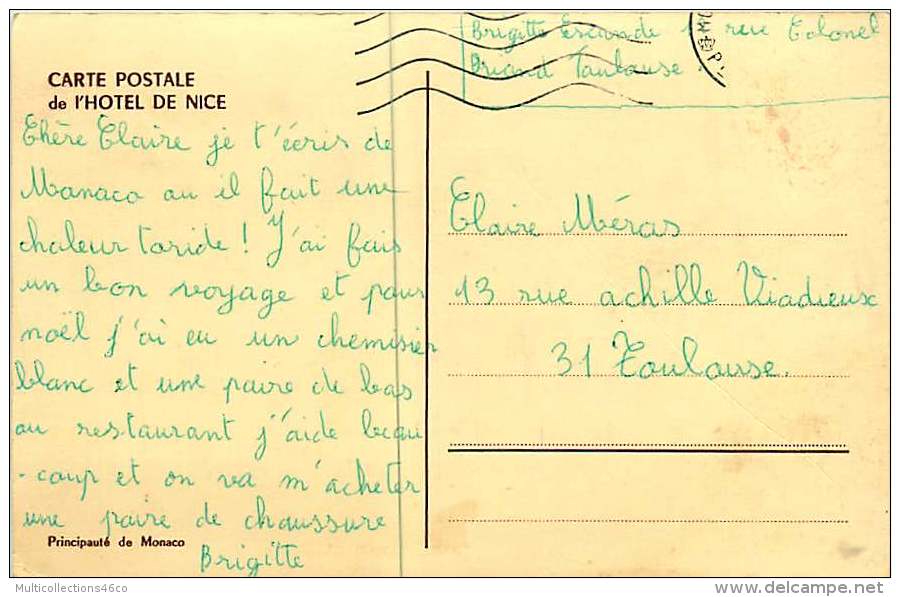 Brigitte Escande 1 rue Colonel
Briand Toulouse
CARTE POSTALE
de l'HOTEL DE NICE
Chère Claire je t'écris de
Monaco ou il fait une
chaleur toride ! J'ai fais
un bon voyage et pour
noël j'ai eu un chemisier
blanc et une paire de bas
au restaurant j'aide beau
-coup et on va m'acheter
une paire de chaussure
Brigitte
Principauté de Monaco
Claire Méras
13 rue achille Viadieux
31 Toulouse.
Multicollections46co
www.delcampe.net